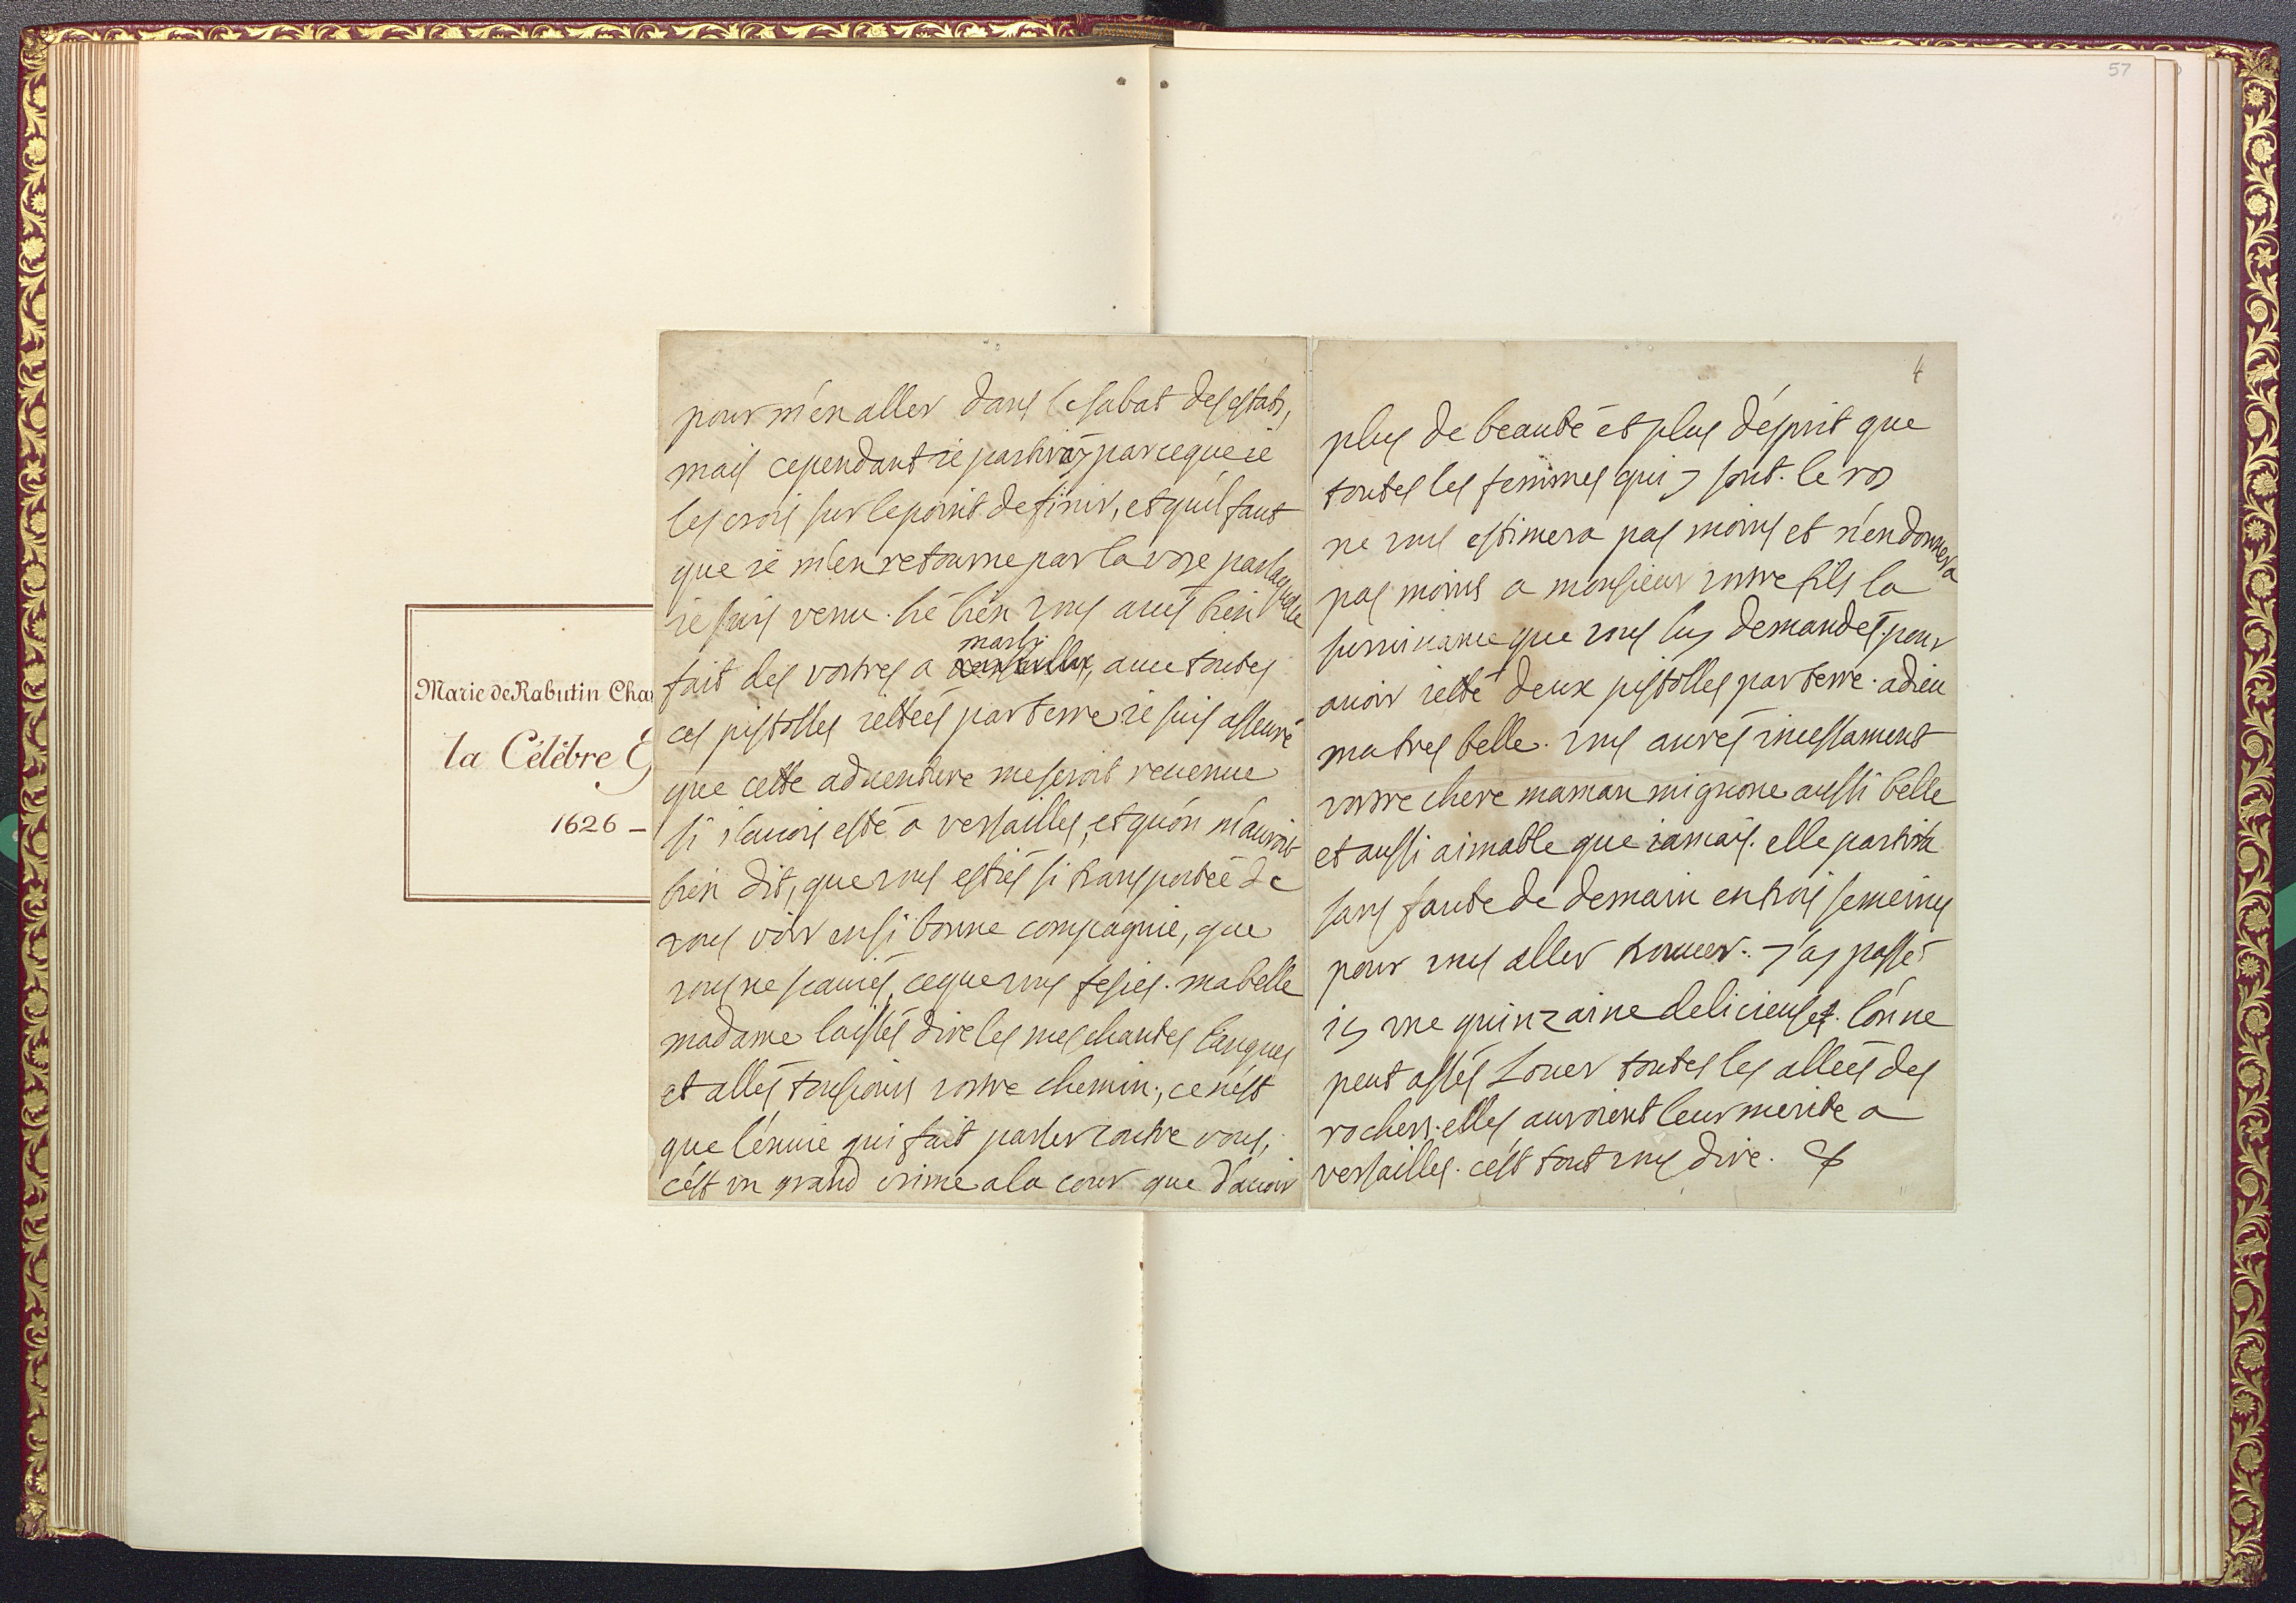 57
Marie de Rabutin Cha
la Célèbre E
1626 –
pour m'en aller dans le sabat des estats,
mais cependant ie partiray parceque ie
les crois sur le point de finir, et qu'il faut
que ie m'en retourne par la voye par laquelle
ie suis venu. hé bien vous aués bien
marli
fait des vostres a versailles, auec toutes
ces pistolles iettées par terre ie suis asseuré
que cette aduenture me seroit reuenue
si i'auois esté a versailles, et qu'on m'auroit
bien dit, que vous estiés si transportée de
vous voir en si bonne compagnie, que
vous ne scauiés ce que vous fesiés. ma belle
madame laissés dire les meschantes langues
et allés tousiours vostre chemin; ce n'est
que l'enuie qui fait parler contre vous;
c'est vn grand crime a la cour que d'auoir
4
plus de beauté et plus d'esprit que
toutes les femmes qui y sont. le roy
ne vous estimera pas moins et n'en donnera
pas moins a monsieur vostre fils la
suruiuance que vous luy demandés pour
auoir ietté deux pistolles par terre. adieu
ma tres belle. vous aurés incessament
vostre chere maman mignone aussi belle
et aussi aimable que iamais. elle partira
sans faute de demain en trois semeines
pour vous aller trouuer. J'ay passé
icy vne quinzaine delicieuse. l'on ne
peut assés Louer toutes les allées des
rochers. elles auroient leur merite a
versailles. c'est tout vous dire.